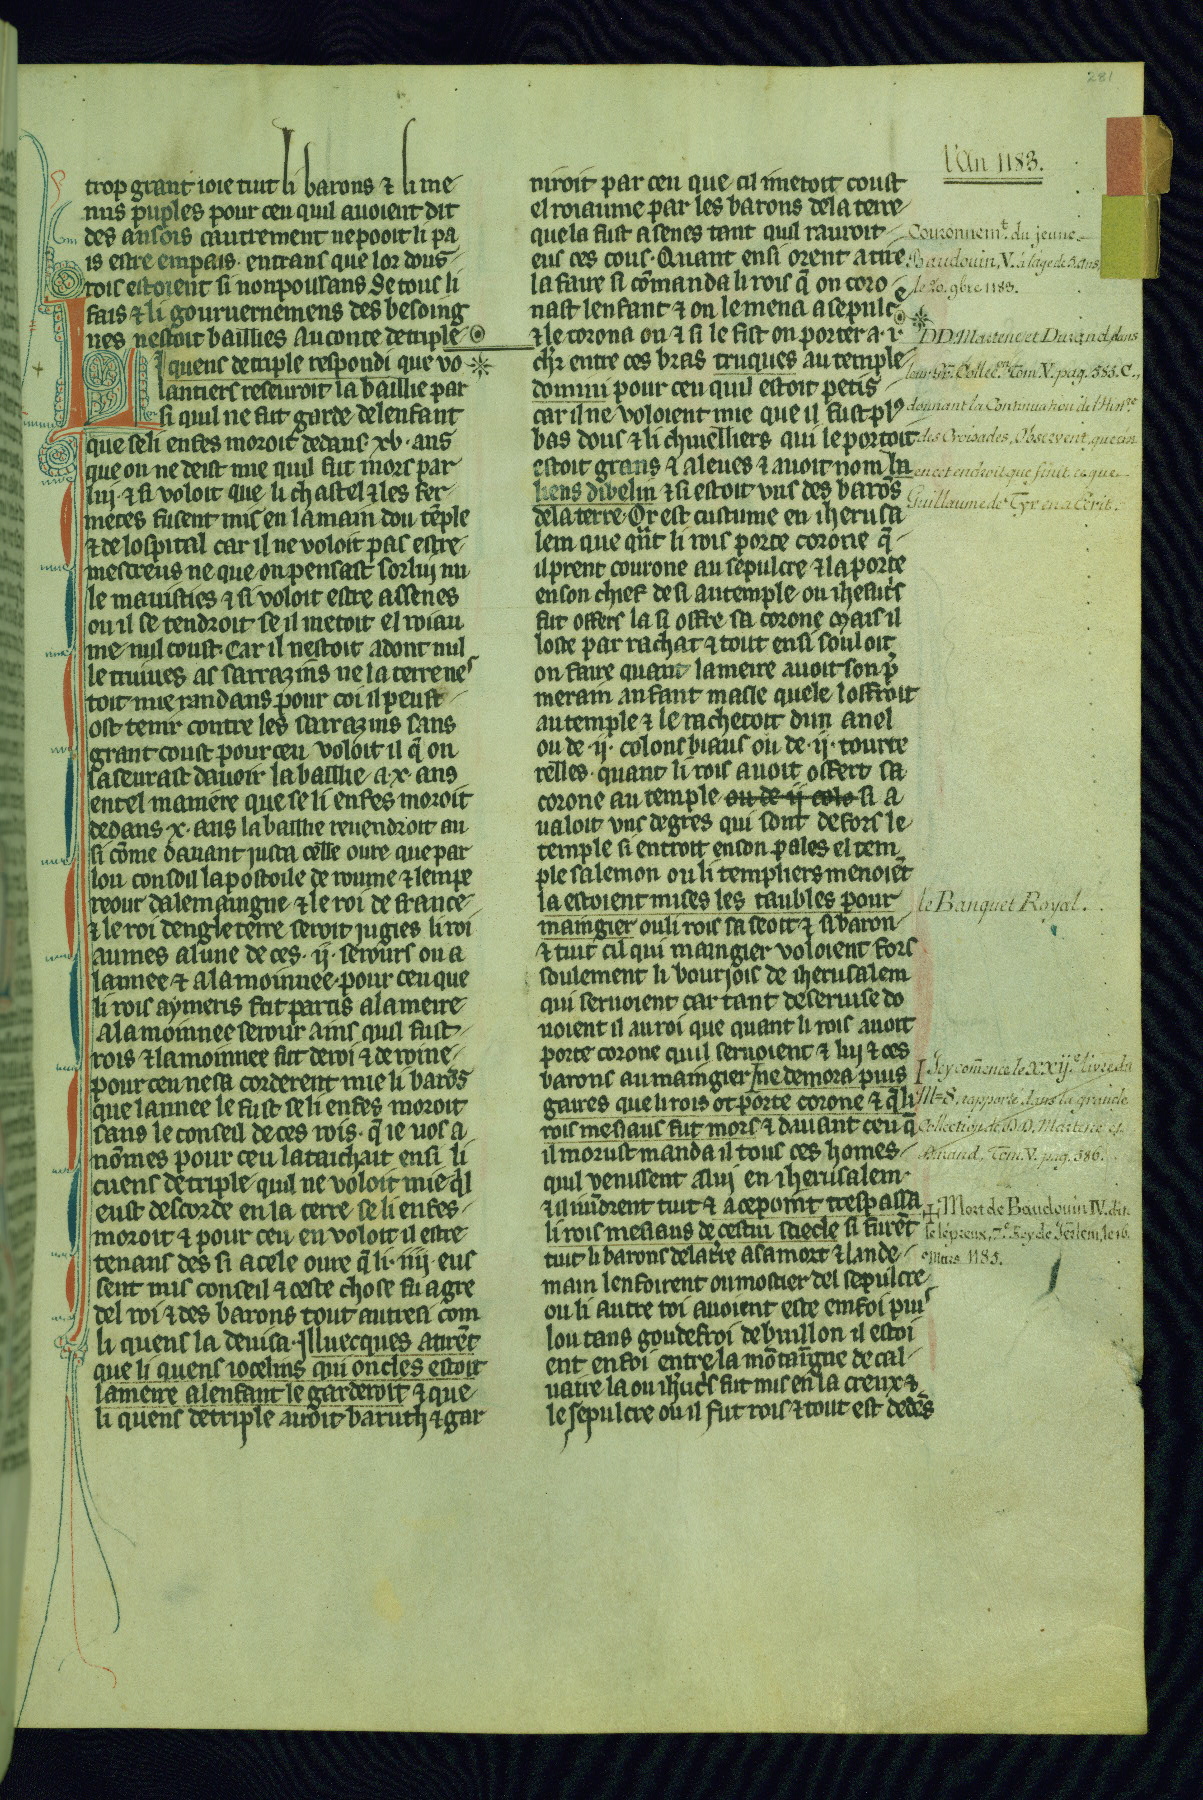 281
trop grant ioie tuit li barons ⁊ li me
nus puples pour ceu quil auoient dit
des ansois cautrement ne pooit li pa
is estre empais· entrans que lor dous
rois estoient si nonpoussans Se tous li
fais ⁊ li gouruernemens des besoing
nes nestoit baillies Au conte de triple
LI quens de triple respondi que vo
lantiers resseuroit la baillie par
si quil ne fut garde de lenfant
que se li enfes moroit dedans xv· ans
que on ne deist mie quil fut mors par
luj· ⁊ si voloit que li chastel ⁊ les fer
meces fusent mis en la main dou tẽple
⁊ de lospital car il ne voloit pas estre
mescreus ne que on pensast sor luj nu
le mauisties ⁊ si voloit estre assenes
ou il se tendroit se il metoit el roiau
me nul coust· Car il nestoit adont nul
le truues as sarrazins ne la terre nes
toit mie randans pour coi il peust
ost tenir contre les sarrazins sans
grant coust pour ceu voloit il q̃ on
laseurast dauoir la baillie ·a·x· ans
en tel maniere que se li enfes moroit
dedans ·x· ans la baillie reuendroit au
si cõme dauant jusca celle oure que par
lou consoil lapostoile de roume ⁊ lempe
reour dalemaingne ⁊ le roi de france
⁊ le roi dengleterre seroit jugies li roi
aumes a lune de ces ·ij· serours ou a
lannee ⁊ a la moinnee· pour ceu que
li rois aymeris fut partis a la meire
a la moinnee serour ains quil fust
rois ⁊ la moinnee fut de roi ⁊ de roine
pour ceu ne sa corderent mie li barõs
que lannee le fust se li enfes moroit
sans le conseil de ces rois· q̃ ie uos a
nõmes pour ceu lataichait ensi li
cuens de triple· quil ne voloit mie q̃l
eust descorde en la terre· se li enfes
moroit ⁊ pour ceu en voloit il estre
tenans des si a cele oure q̃ li ·iiij· eus
sent mis conseil ⁊ ceste chose fu agre
del roi ⁊ des barons tout autresi com
li quens la deuisa· Illuecques atirẽt
que li quens iocelins qui oncles estoit
la meire a lenfant le garderoit ⁊ que
li quens de triple auroit baruth ⁊ gar
niroit par ceu que cil imetoit coust
el roiaume par les barons de la terre
que la fust asenes tant quil rauroit
eus ces cous· Quant ensi orent atire
la faire si cõmanda li rois q̃ on coro
nast lenfant ⁊ on le mena a sepulcre
⁊ le corona on ⁊ si le fist on porter a·j·
chr̃ entre ces bras truques au temple
domini pour ceu quil estoit petis
car il ne voloient mie que il fust pl9
bas dous ⁊ li chiuelliers qui le portoit
estoit grans ⁊ aleues ⁊ auoit nom ba
liens dibelin ⁊ si estoit vns des barõs
de la terre· Or est custume en iherusa
lem que qñt li rois porte corone q̃
il prent courone au sepulcre ⁊ la porte
en son chief de si au temple ou ihesucrs
fut offers la si offre sa corone Mais il
loste par rachat ⁊ tout ensi souloit
on faire quant la meire auoit son p̃
merain anfant masle quele loffroit
au temple ⁊ le rachetoit dun anel
ou de ·ij· colons biaus ou de ·ij· tourte
relles· quant li rois auoit offert sa
corone au temple ou de ij colo si a
ualoit vns degres qui sont defors le
temple si entroit en son pales el tem
ple salemon ou li templiers menoiẽt
la estoient mises les taubles pour
maingier ou li rois sa seoit ⁊ si baron
⁊ tuit cil qui maingier voloient fors
soulement li bourjois de iherusalem
qui seruoient car tant de seruise do
uoient il au roi que quant li rois auoit
porte corone quil seruoient ⁊ luj ⁊ ces
barons au maingier ne demora puis
gaires que li rois ot porte corone ⁊ q̃ li
rois mesiaus fut mors ⁊ dauant ceu q̃
il morust manda il tous ces homes
quil venissent a luj en iherusalem·
⁊ il uindrent tuit ⁊ a ce point trespassa
li rois mesiaus de cestui siecle si furẽt
tuit li barons de la tẽre a sa mort ⁊ lande
main lenfoirent ou mostier del sepulcre
ou li autre roi auoient este emfoi puis
lou tans goudefroi de buillon il estoi
ent enfoi entre la mõtaingne de cal
uaire la ou ihucrs fut mis en la creux ⁊
le sepulcre ou il fut rois ⁊ tout est dedẽs
l'An 1183.
Couronnemt. du jeune
Baudouin, V. à l'age de 5. ans,
le 20. 9bre 1183.
DD. Martene et Durand, dans
leur gde. Collecon. Tom. V. pag. 583. C.,
donnant la Continuation de l'Histre
des Croisades, observent, que c'est
en cet endroit, que finit ce que
Guillaume de Tyr en a écrit.
le Banquet Royal.
Icy comence le XXIJe. livre du
MS. rapporté dans la grande
Collection de DD. Martene et
Durand, Tom. V. pag. 586.
Mort de Baudouin IV. dit
le lépreux, 7e. Roy de Jérlem, le 16.
Mars 1185.